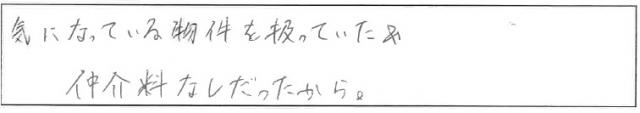 気になっている物件を扱っていた&
仲介料なしだったから。